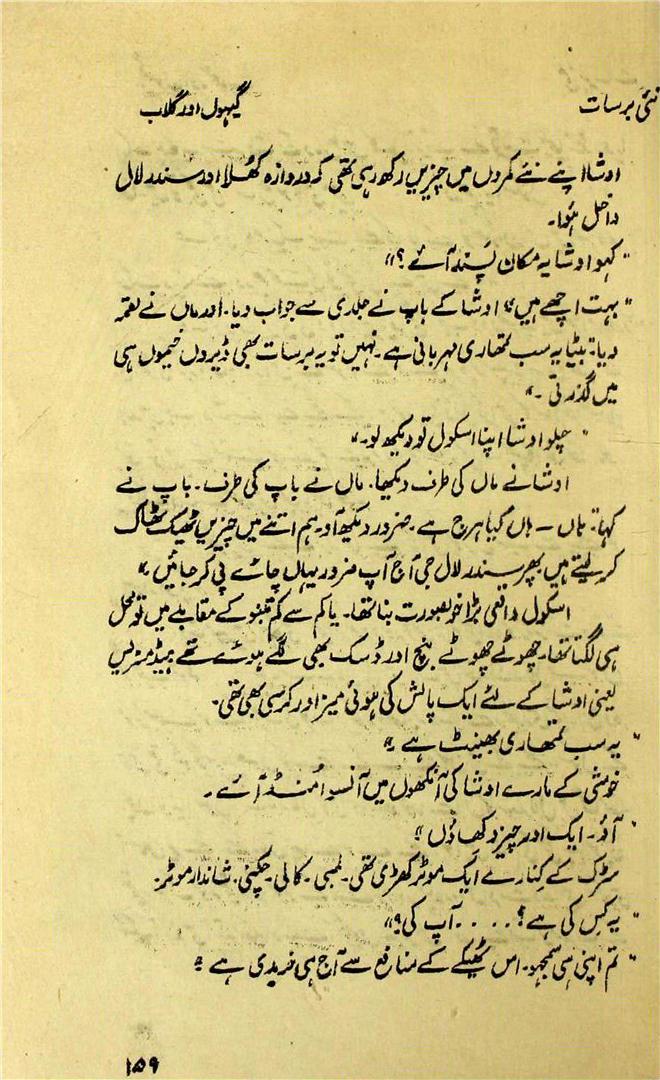 نئی برسات
گیہوں اور گلاب
اوشا اپنے نئے کمروں میں چیزیں رکھ رہی تھی کہ دروازہ کھُلا اور سندر لال
داخل ہُوا۔
"کہو اوشا یہ مکان پَسند آئے؟"
"بہت اچھے ہیں" اوشا کے باپ نے جلدی سے جواب دیا۔ اور ماں نے لقمہ
دیا: بیٹا یہ سب تمھاری مہربانی ہے۔ نہیں تو یہ برسات بھی ڈیروں خیموں ہی
میں گذرتی۔"
"چلو اوشا اپنا اسکول تو دیکھ لو۔"
اوشا نے ماں کی طرف دیکھا۔ ماں نے باپ کی طرف۔ باپ نے
کہا: ہاں – ہاں کیا ہرج ہے۔ ضرور دیکھ آؤ۔ ہم اتنے میں چیزیں ٹھیک ٹھاک
کر لیتے ہیں پھر سندر لال جی آج آپ ضرور یہاں چائے پی کر جائیں۔"
اسکول واقعی بڑا خوبصورت بنا تھا۔ یا کم سے کم تنبو کے مقابلے میں تو محل
ہی لگتا تھا۔ چھوٹے چھوٹے بنچ اور ڈسک بھی لگے ہوئے تھے ہیڈ مسٹریس
یعنی اوشا کے لئے ایک پالش کی ہوئی میز اور کرسی بھی تھی۔
"یہ سب تمھاری بھینٹ ہے۔"
خوشی کے مارے اوشا کی آنکھوں میں آنسو اُمنڈ آئے۔
"آؤ۔ ایک اور چیز دکھاؤں"
سڑک کے کِنارے ایک موٹر کھڑی تھی۔ لمبی۔ کالی۔ چکنی۔ شاندار موٹر۔
"یہ کِس کی ہے؟ . . . . آپ کی؟"
"تم اپنی ہی سمجھو۔ اس ٹھیکے کے منافع سے آج ہی خریدی ہے۔"
۱۵۹